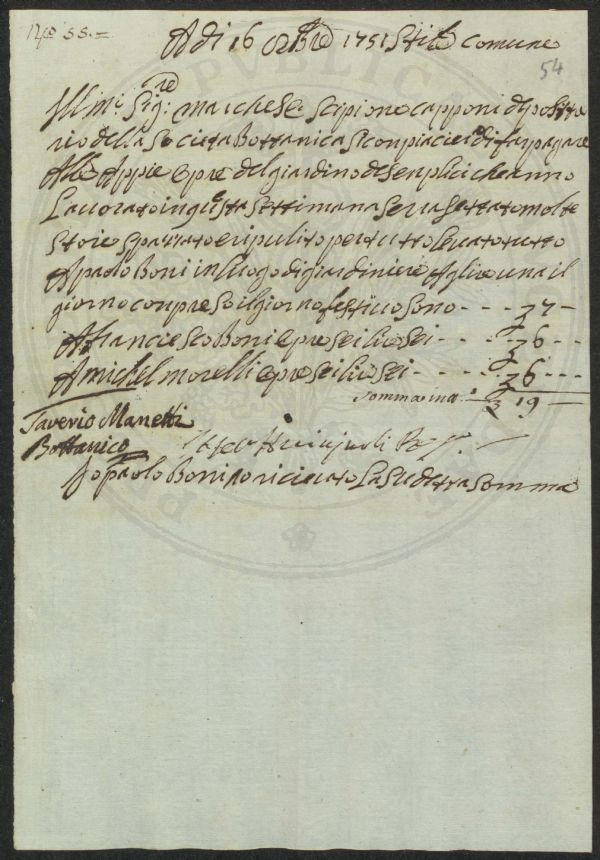 No 55.=
A di 16 8bre 1751 Stile Comune
54
Ill.mo Sig.re marchese Scipione capponi depositta
rio della Societta Bottanica si conpiacierà di far pagare
Alle Appie opre del giardino de senplici che anno
Lavorato in questa Settimana Serragattato molte
Stoie Spazzato e ripulito per tutto levato tutto
A paolo Boni in luogo di giardiniere A glire una il
giorno conpreso il giorno festivo sono - - - £ 7 -
A franciesco Boni opre sei lire sei - - - £ 6 - -
A michel morelli opre sei lire sei - - - - £ 6 - - -
Somma in a £ 19 -
Saverio Manetti
Bottanico
Io paolo Boni o riceuto La Sudetta Somma